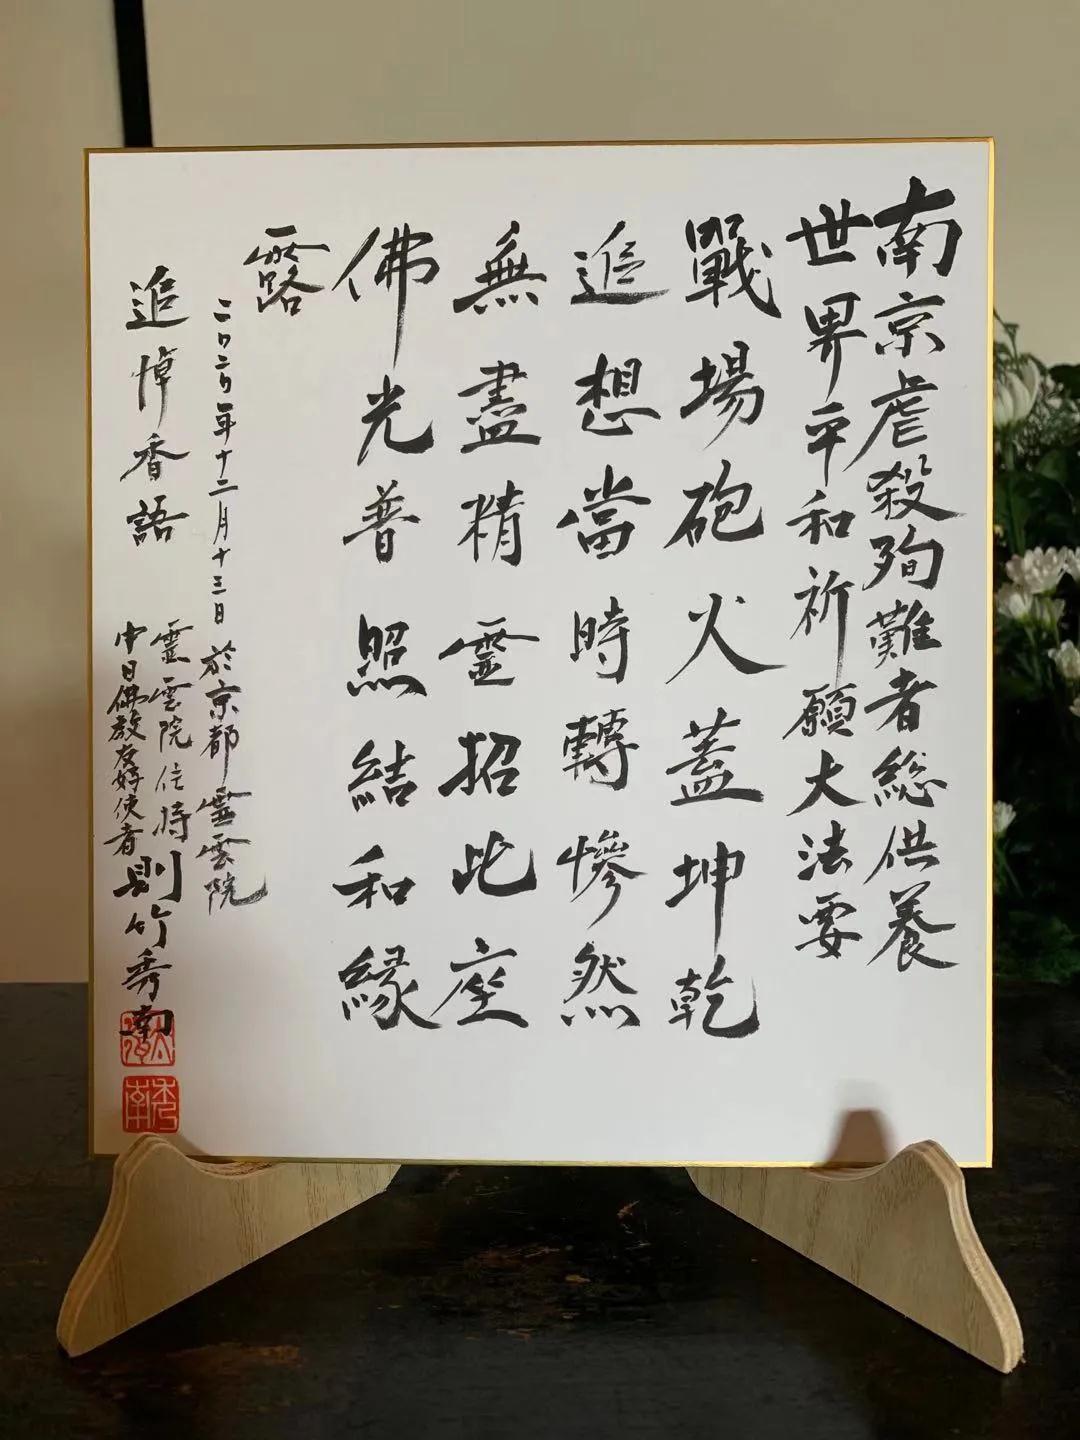 南京虐殺殉難者総供養
世界平和祈願大法要
戰場砲火蓋坤乾
追想當時轉慘然
無盡精霊招此座
佛光普照結和縁
露
二〇二〇年十二月十三日 於京都霊雲院
追悼香語
霊雲院住持
中日佛教友好使者
則竹秀南
秀南